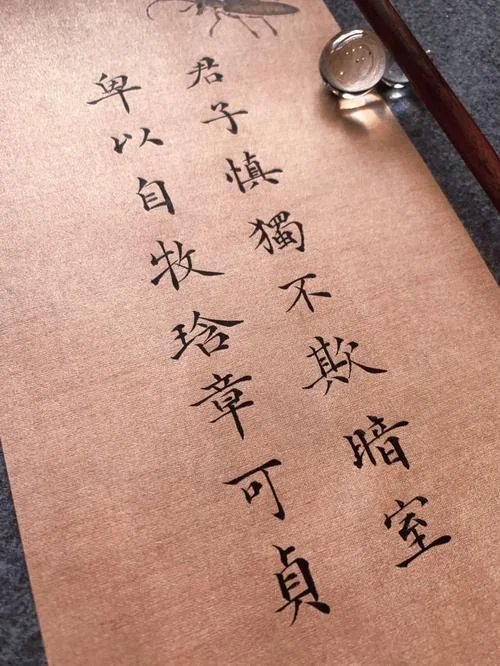 君子慎獨不欺暗室
卑以自牧琀章可貞